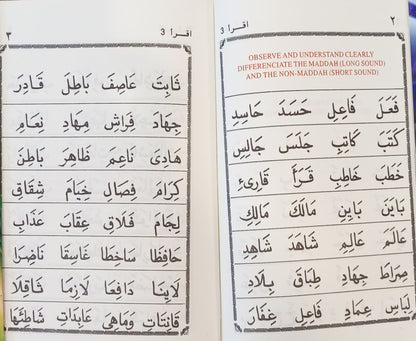 ٢ اقرأ 3
OBSERVE AND UNDERSTAND CLEARLY
DIFFERENCIATE THE MADDAH (LONG SOUND)
AND THE NON-MADDAH (SHORT SOUND)
فَعَلَ فَاعِلِ حَسَدَ حَاسِدِ
كَتَبَ كَاتِبِ جَلَسَ جَالِسِ
خَطَبَ خَاطِبِ قَرَأَ قَارِئِ
بَايَنَ بَايِنِ مَالَكَ مَالِكِ
عَالَمَ عَالِمِ شَاهَدَ شَاهِدِ
صِرَاطَ جِهَادِ طِبَاقَ بِلَادِ
لِبَاسِ عِمَادِ فَاعِلِ غِفَارَ
اقرأ 3 ٣
ثَابِتَ عَاصِفَ بَاطِلَ قَادِرَ
جِهَادَ فِرَاشِ مِهَادِ نِعَامِ
هَادِيَ نَاعِمَ ظَاهِرَ بَاطِنَ
كِرَامَ فِصَالِ خِيَامَ شِقَاقِ
لِجَامَ فَلَاقِ عِقَابَ عَذَابِ
حَافِظَا سَاخِطَا غَاسِقَا نَاضِرَا
لَايِنَا دَافِعَا لَازِمَا شَاقِلَا
قَانِتَاتِ وَمَاهِيَ عَابِدَاتِ شَاطِئِهَا